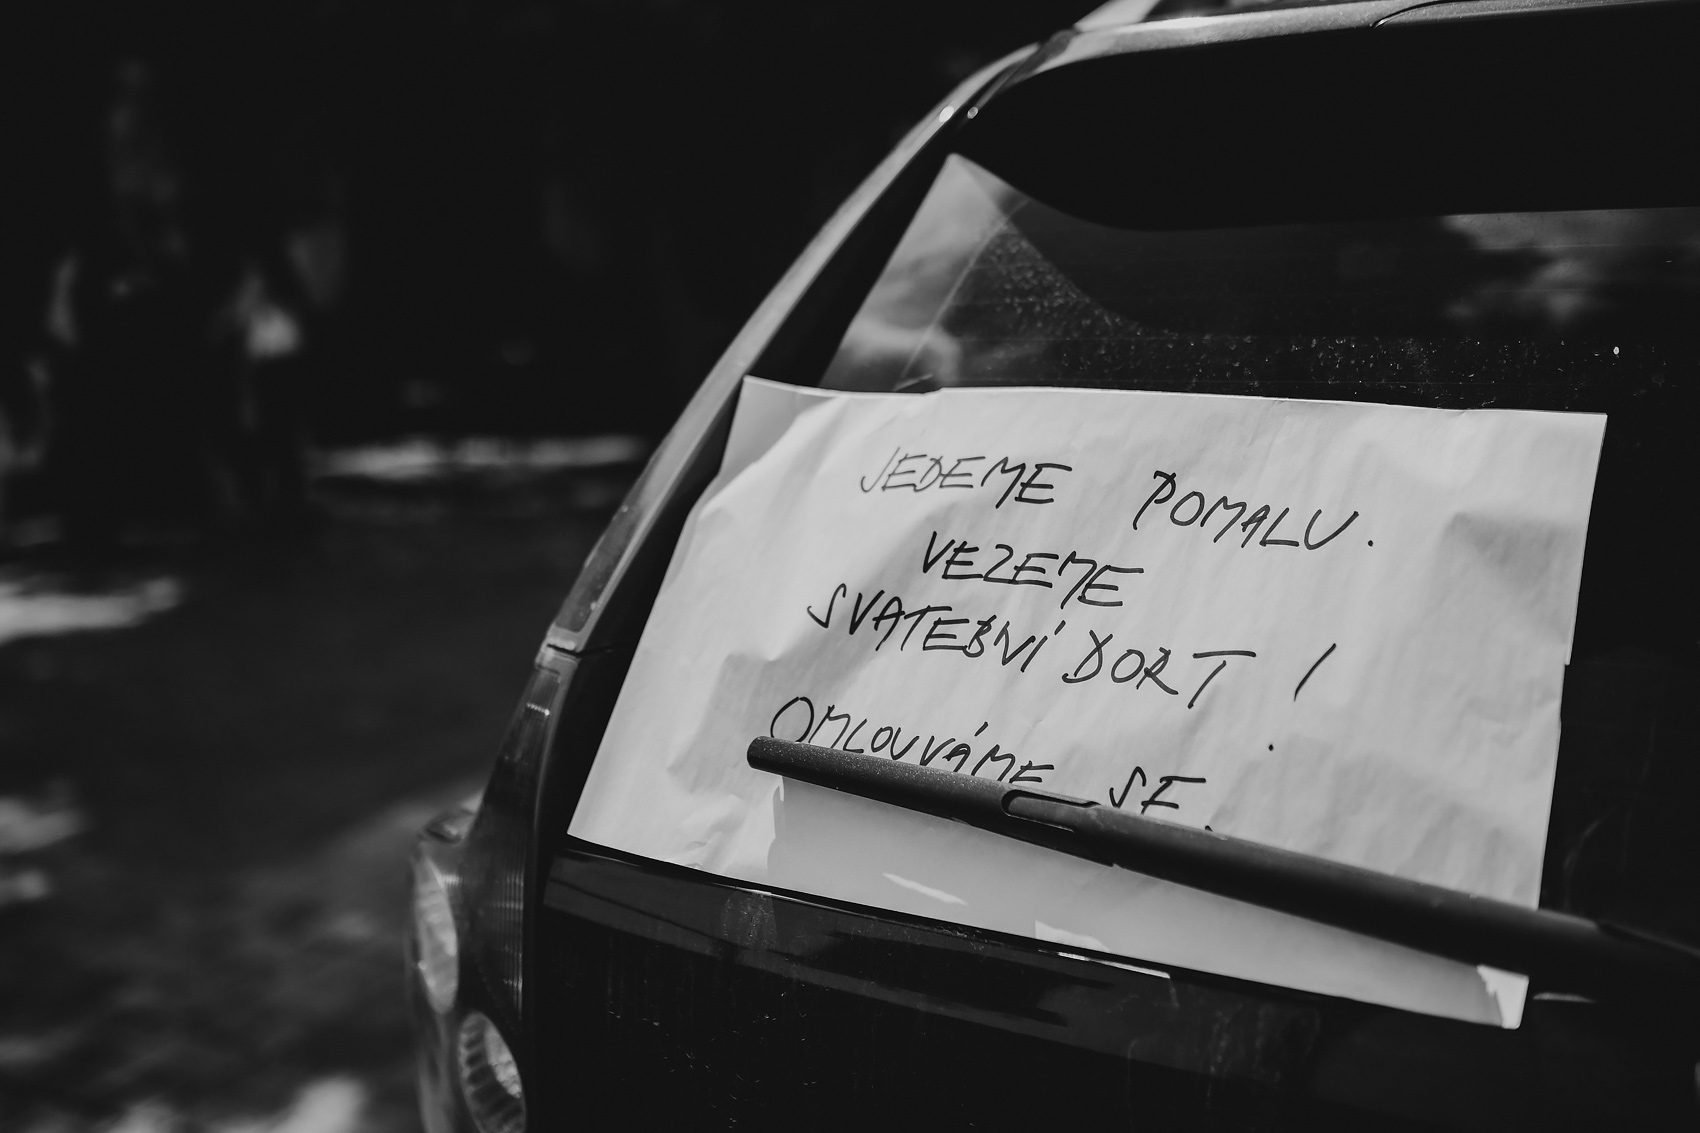 JEDEME POMALU.
VEZEME
SVATEBNÍ DORT !
OMLOUVÁME SE.